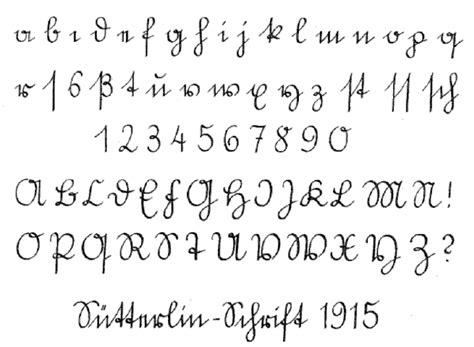 a b c d e f g h i j k l m n o p q
r ſ s ß t u v w x y z ſt ſſ ſch
1 2 3 4 5 6 7 8 9 0
A B C D E F G H I J K L M N !
O P Q R S T U V W X Y Z ?
Sütterlin-Schrift 1915